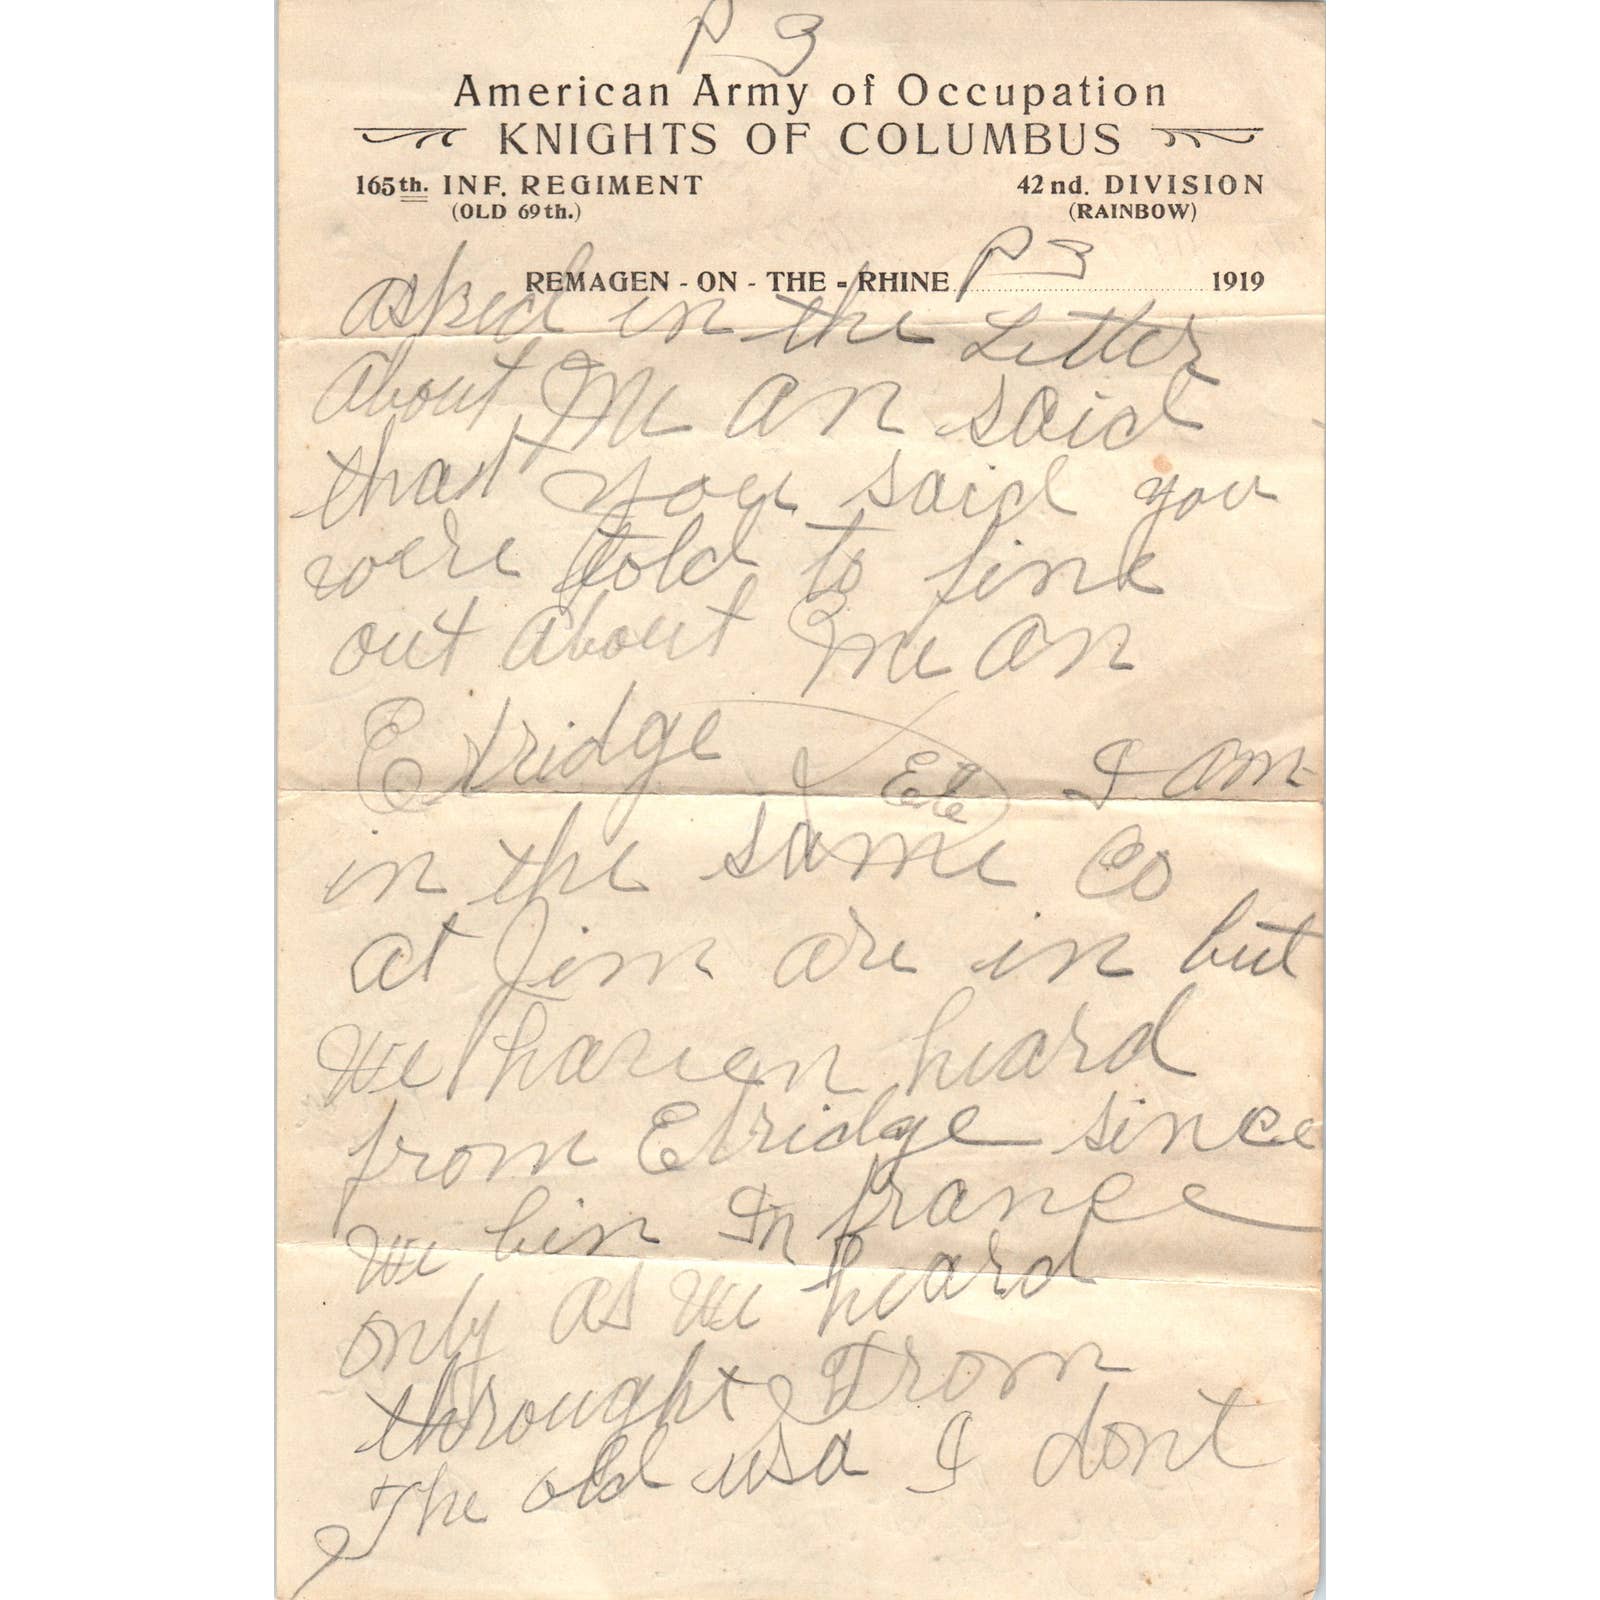 P 3
American Army of Occupation
KNIGHTS OF COLUMBUS
165th. INF. REGIMENT 42nd. DIVISION
(OLD 69th.) (RAINBOW)
REMAGEN - ON - THE - RHINE P 3 1919
asked in the Letter
about Me an said
that you said you
were told to fine
out about Me an
Etridge I am
in the same Co
at Jim are in but
We haven heard
from Etridge since
We bin In france
only as We heard
throught From
The old usa I dont